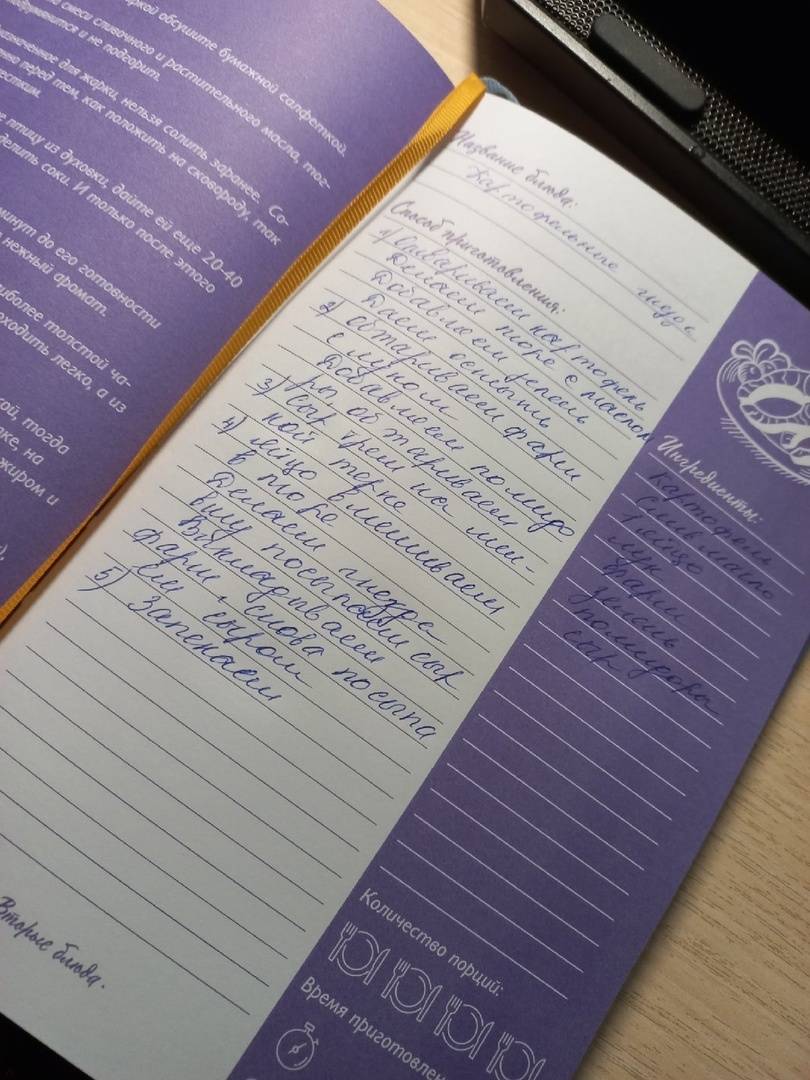 жаркой обсушите бумажной салфеткой.
смеси сливочного и растительного масла, тог-
подрумянится и не подгорит.
предназначенное для жарки, нельзя солить заранее. Со-
перед тем, как положить на сковороду, так
птицу из духовки, дайте ей еще 20-40
делить соки. И только после этого
минут до его готовности
нежный аромат.
более толстой ча-
ходить легко, а из
тогда
на
жиром и
Название блюда:
Картофельные гнезда
Способ приготовления:
1) Отвариваем картофель
Делаем пюре с маслом
Добавляем зелень
Даем остыть
2) обжариваем фарш
с луком
Добавляем помидо
ры обжариваем
3) Сыр трем на мел-
кой терке
4) яйцо вмешиваем
в пюре
Делаем гнезда
внизу посыпаем сыр
Выкладываем
фарш, снова посыпа
ем сыром
5) Запекаем
Вторые блюда.
Ингредиенты:
картофель
слив масло
1 яйцо
лук
фарш
зелень
помидоры
сыр
Количество порций:
Время приготовлен